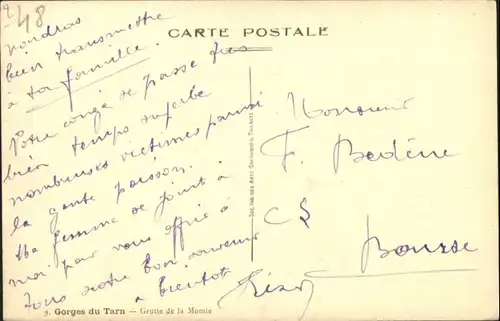 248
CARTE POSTALE
voudras
bien transmettre
à ta famille.
Notre congé se passe très
bien temps superbe
nombreuses victimes parmi
la gente poisson.
Ma femme se joint à
moi pour vous offrir à
Tous notre bon souvenir
à bientôt
Monsieur
F. Bedène
CS
Bourse
9. Gorges du Tarn — Grotte de la Momie